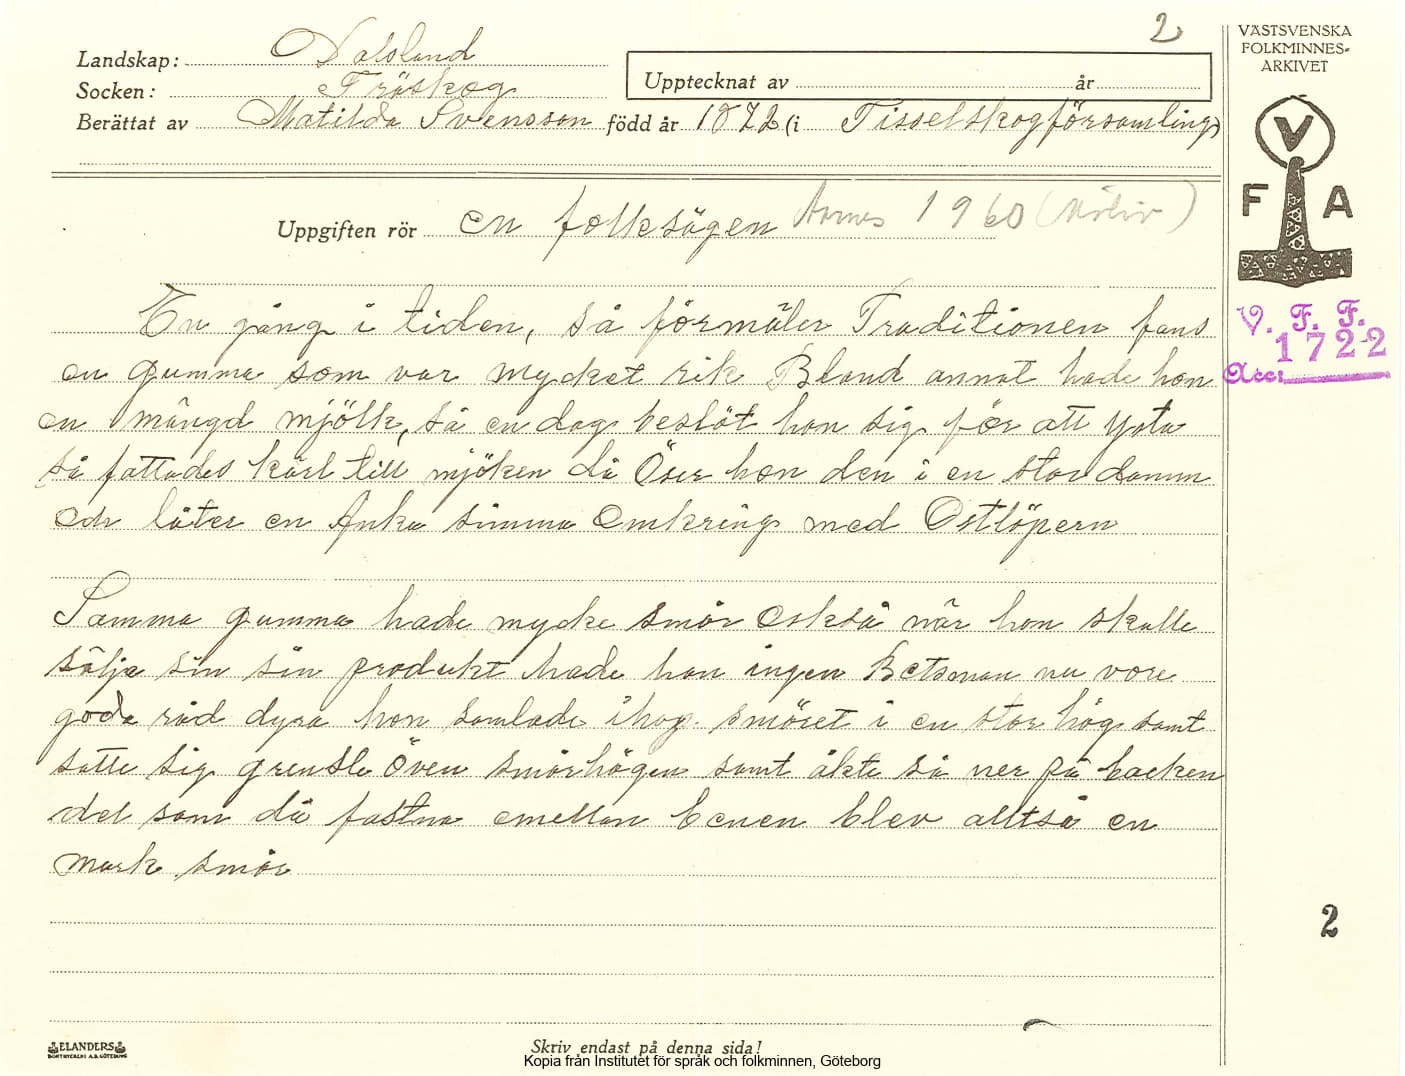 2
VÄSTSVENSKA
FOLKMINNES-
ARKIVET
Landskap: Dalsland
Socken: Fröskog
Upptecknat av år
Berättat av Matilda Svensson född år 1872 (i Tisselskogförsamling)
V
F A
Uppgiften rör en folksägen Aarnes 1960
V. F. F.
1722
Acc:
En gång i tiden, så förmäler Traditionen fans
en gumma som var mycket rik Bland annat hade hon
en mängd mjölk, så en dag beslöt hon sig för att ysta
så fattades kärl till mjöken då Öser hon den i en stor damm
och låter en Anka simma omkring med Ostlöpern
Samma gumma hade mycke smör också når hon skulle
sälja sin sin produkt hade hon ingen Betsman nu vore
goda råd dyra hon samlade ihop smöret i en stor hög samt
satte sig grensle Över smörhögen samt åkte så ner på backen
det som då fastna emellan benen blev alltså en
mark smör
2
ELANDERS
BOKTRYCKERI A.B. GÖTEBORG
Skriv endast på denna sida!
Kopia från Institutet för språk och folkminnen, Göteborg